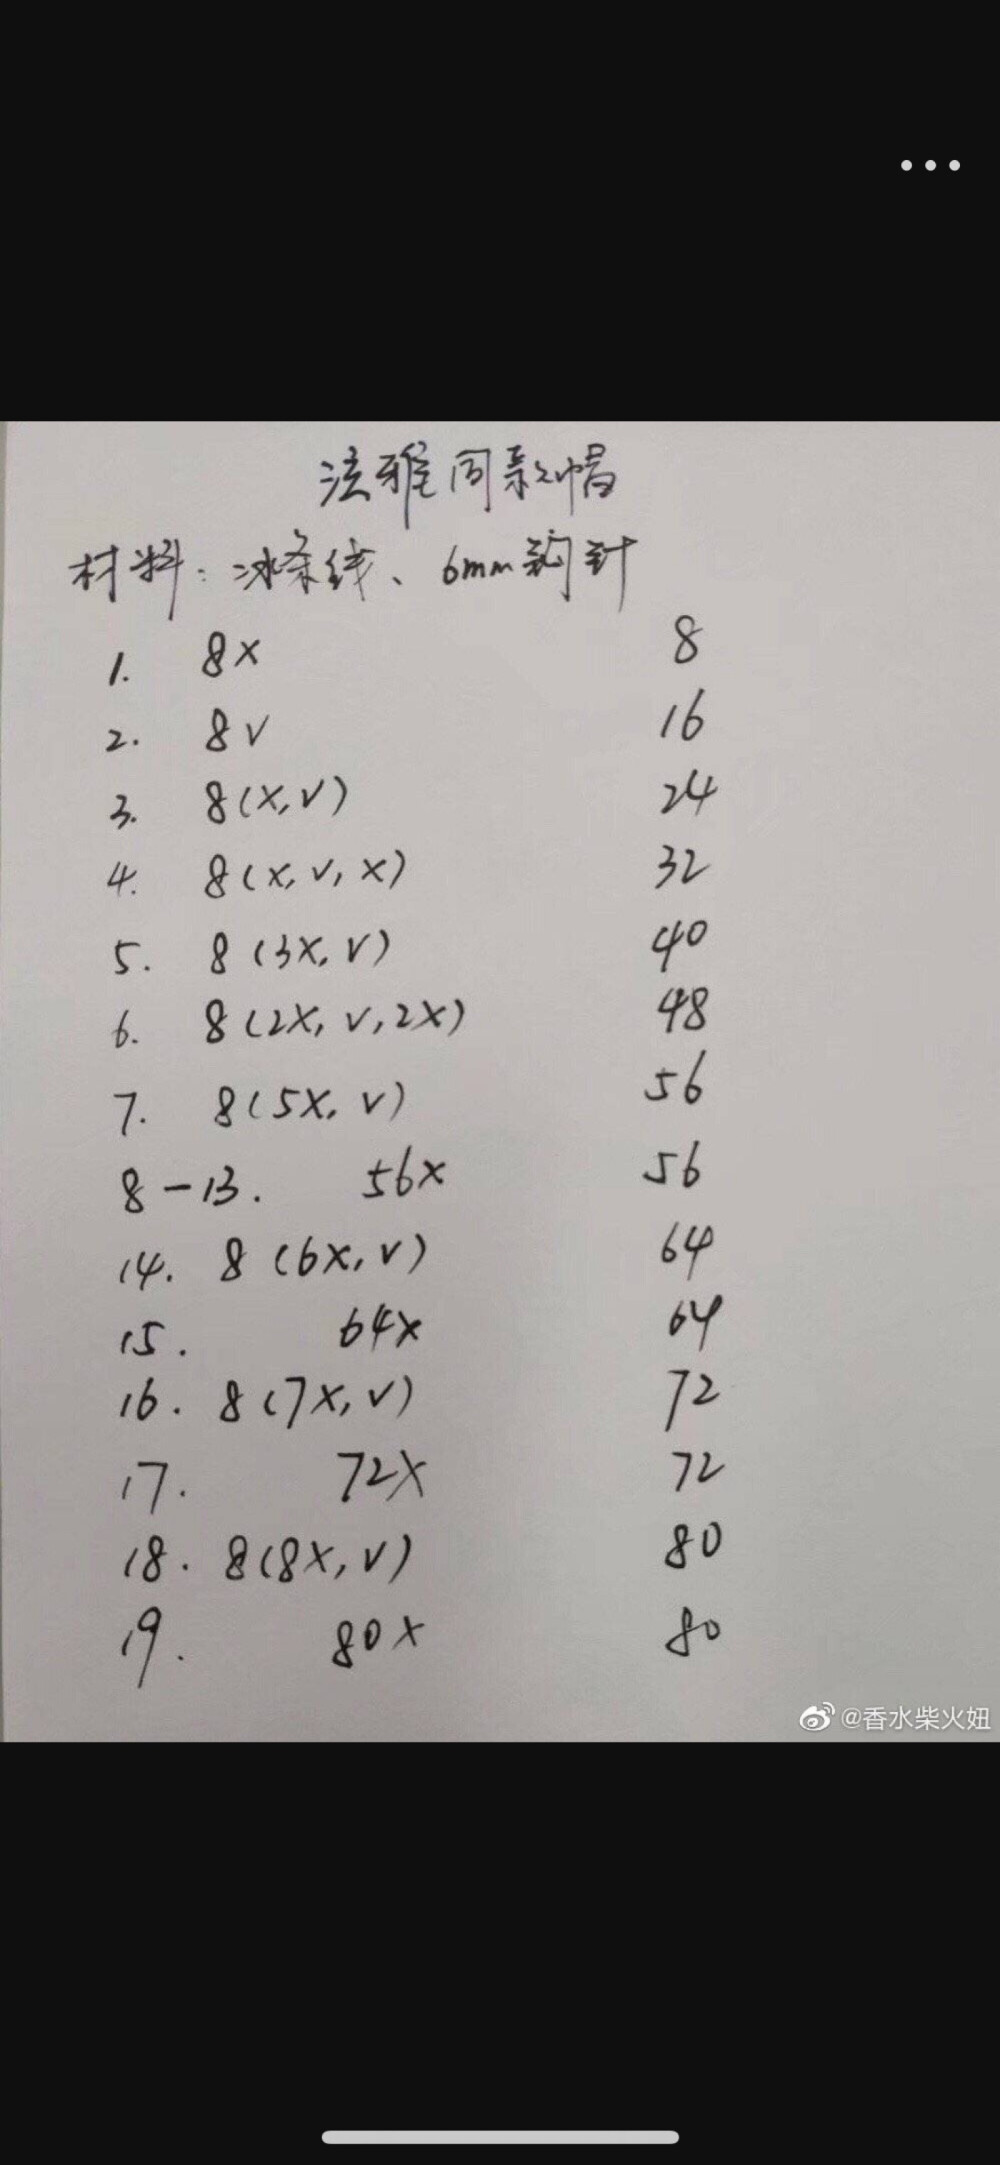 泫雅同款帽
材料：冰条线、6mm钩针
1. 8x 8
2. 8v 16
3. 8(x,v) 24
4. 8(x,v,x) 32
5. 8(3x,v) 40
6. 8(2x,v,2x) 48
7. 8(5x,v) 56
8-13. 56x 56
14. 8(6x,v) 64
15. 64x 64
16. 8(7x,v) 72
17. 72x 72
18. 8(8x,v) 80
19. 80x 80
@香水柴火妞